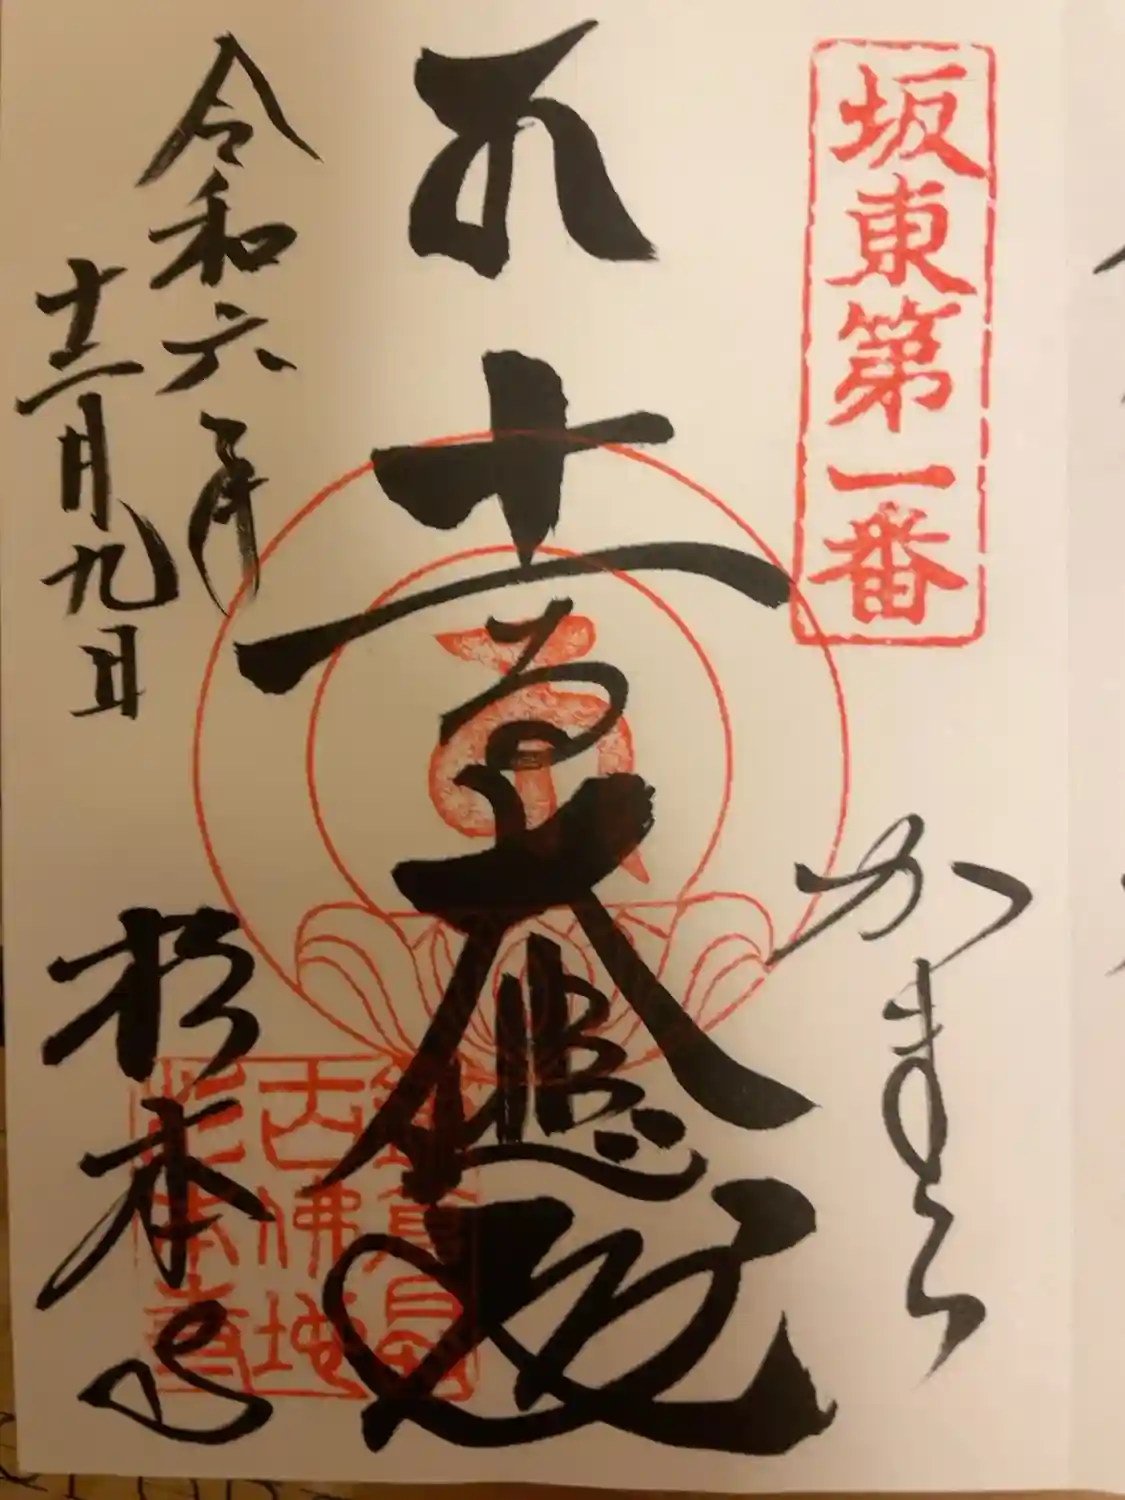 坂東第一番
かまくら
十一面大悲殿
令和六年
十二月九日
杉本寺
鎌倉最
古佛地
杉本寺